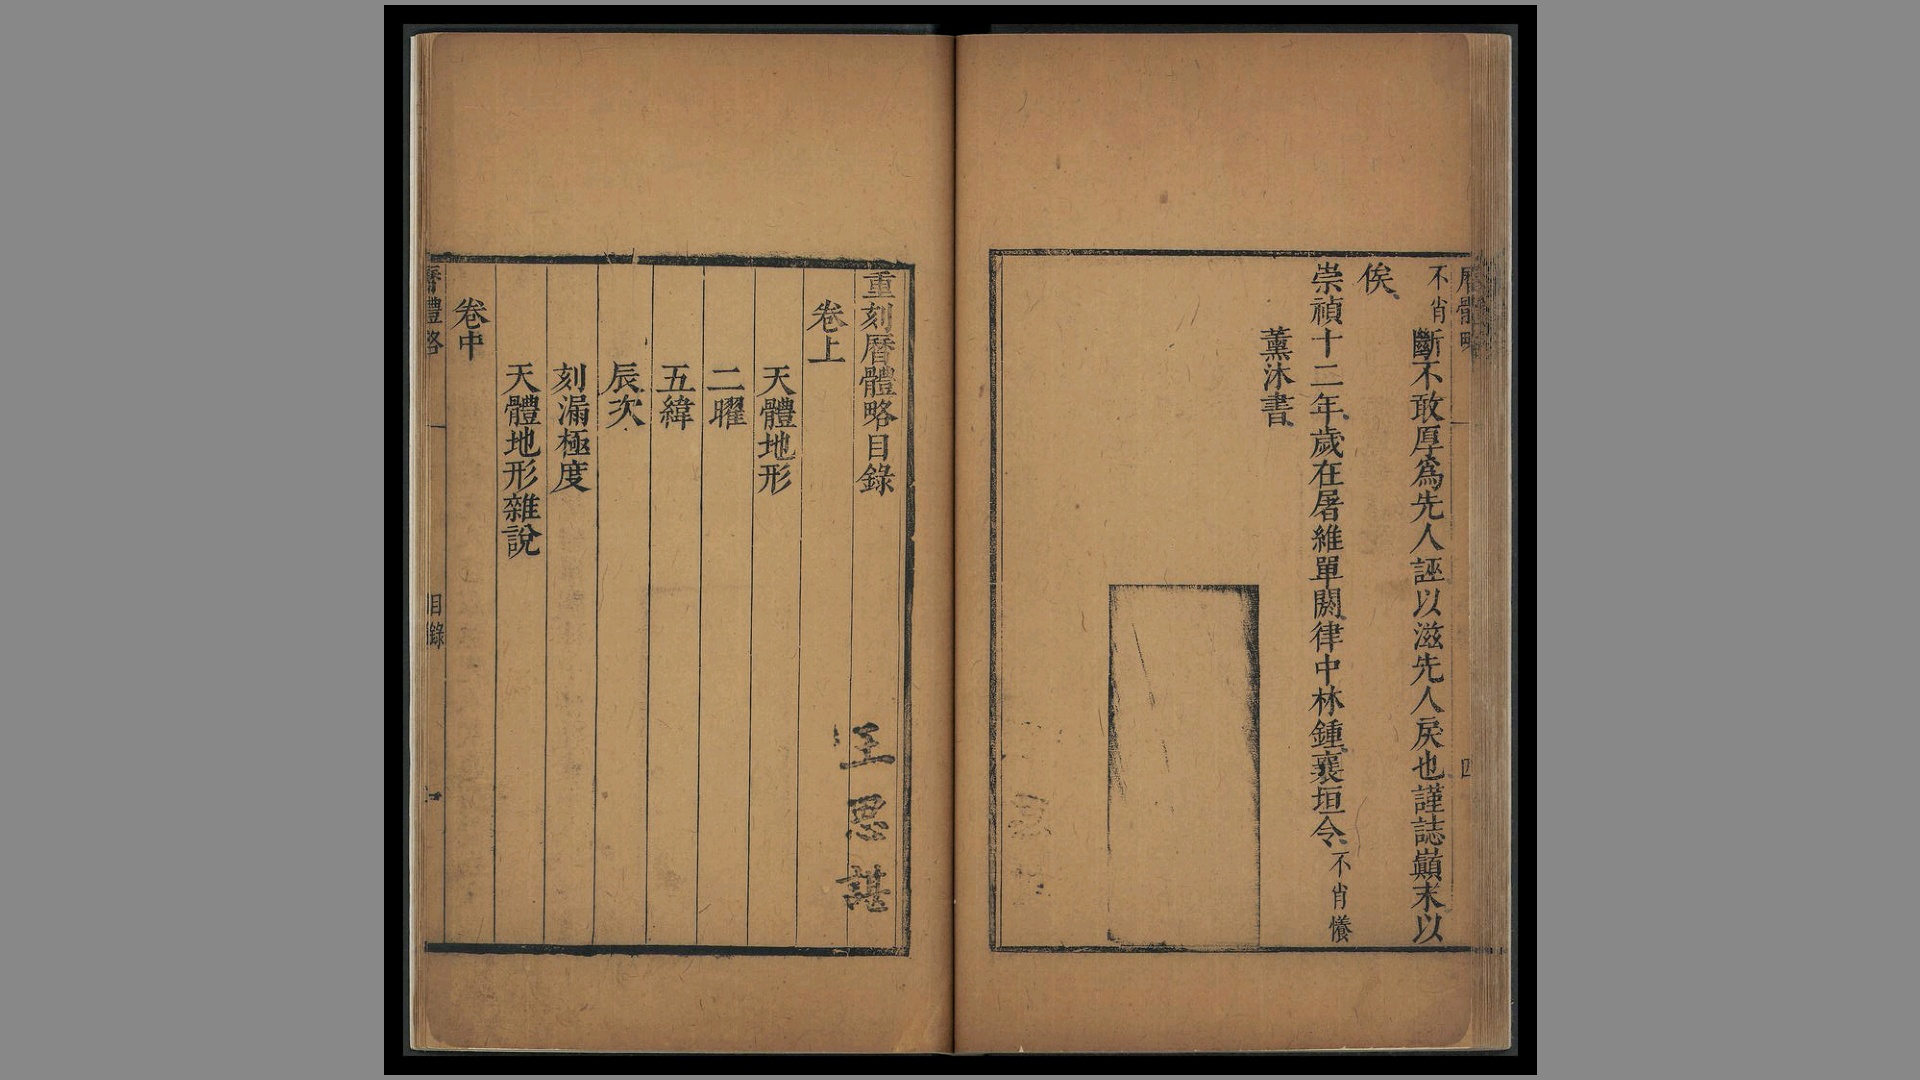 曆體略
四
不肖斷不敢厚爲先人誣以滋先人戾也謹誌巔末以
俟
崇禎十二年歲在屠維單閼律中林鍾襄垣令不肖懩
薰沐書
重刻曆體略目錄
卷上
天體地形
二曜
五緯
辰次
刻漏極度
天體地形雜說
卷中
曆體略
目錄
一
王思諶